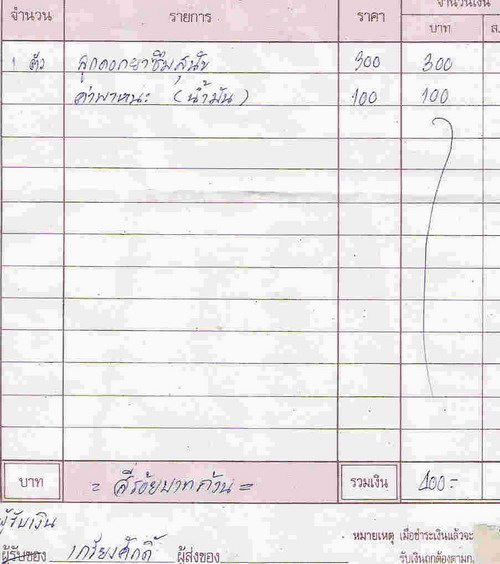 จำนวน รายการ ราคา จำนวนเงิน
บาท ส.
1 ตัว ลูกดอกยาซึมสุนัข 300 300
ค่าพาหนะ (น้ำมัน) 100 100
บาท = สี่ร้อยบาทถ้วน = รวมเงิน 400 -
ผู้รับเงิน
หมายเหตุ เมื่อชำระเงินแล้วจะ
ผู้รับของ เกรียงศักดิ์ ผู้ส่งของ รับเงินถูกต้องตามก